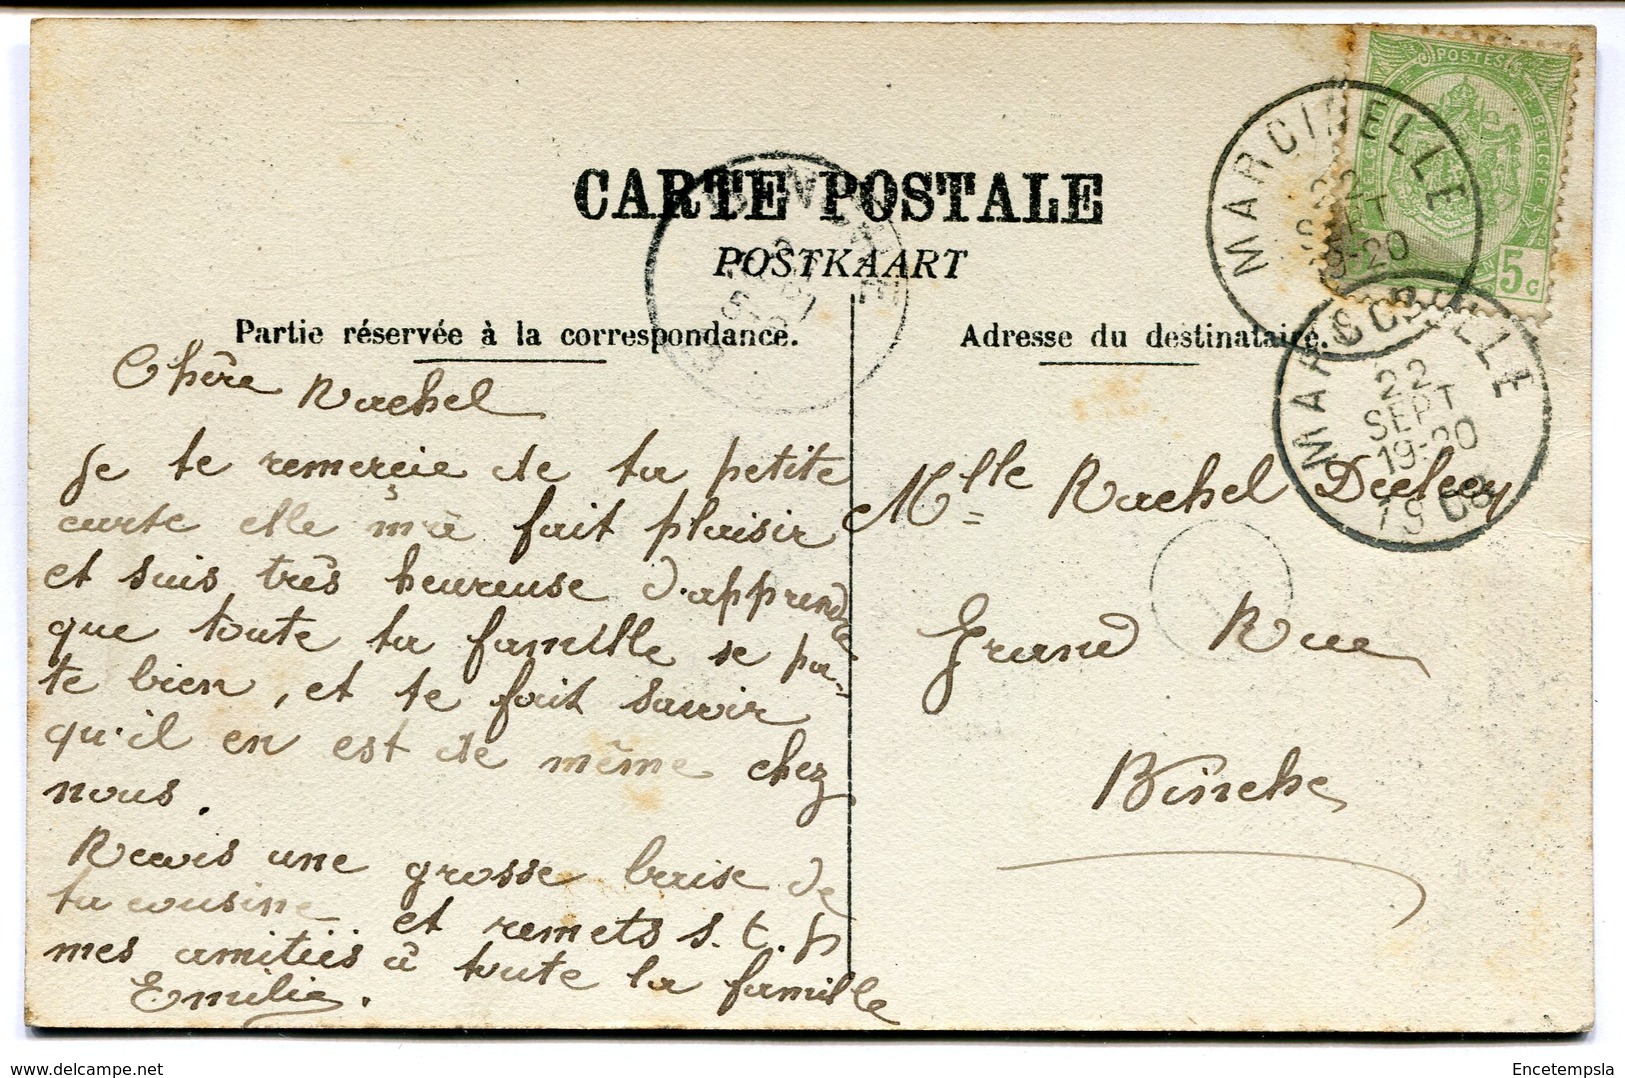 CARTE POSTALE
POSTKAART
Partie réservée à la correspondance.
Adresse du destinataire.
POSTES
BELGIE
5c
MARCINELLE
22
SEPT
19-20
MARCINELLE
22
SEPT
19-20
1908
Chère Rachel
Je te remerçie de ta petite
carte elle m'a fait plaisir
et suis très heureuse d'apprendre
que toute ta famille se po-
te bien, et te fait savoir
qu'il en est de même chez
nous.
Reçois une grosse baise de
ta cousine et remets s.t.p
mes amitiés à toute la famille
Emilie.
Mlle Rachel
Grand Rue
Binche
Encetempsla